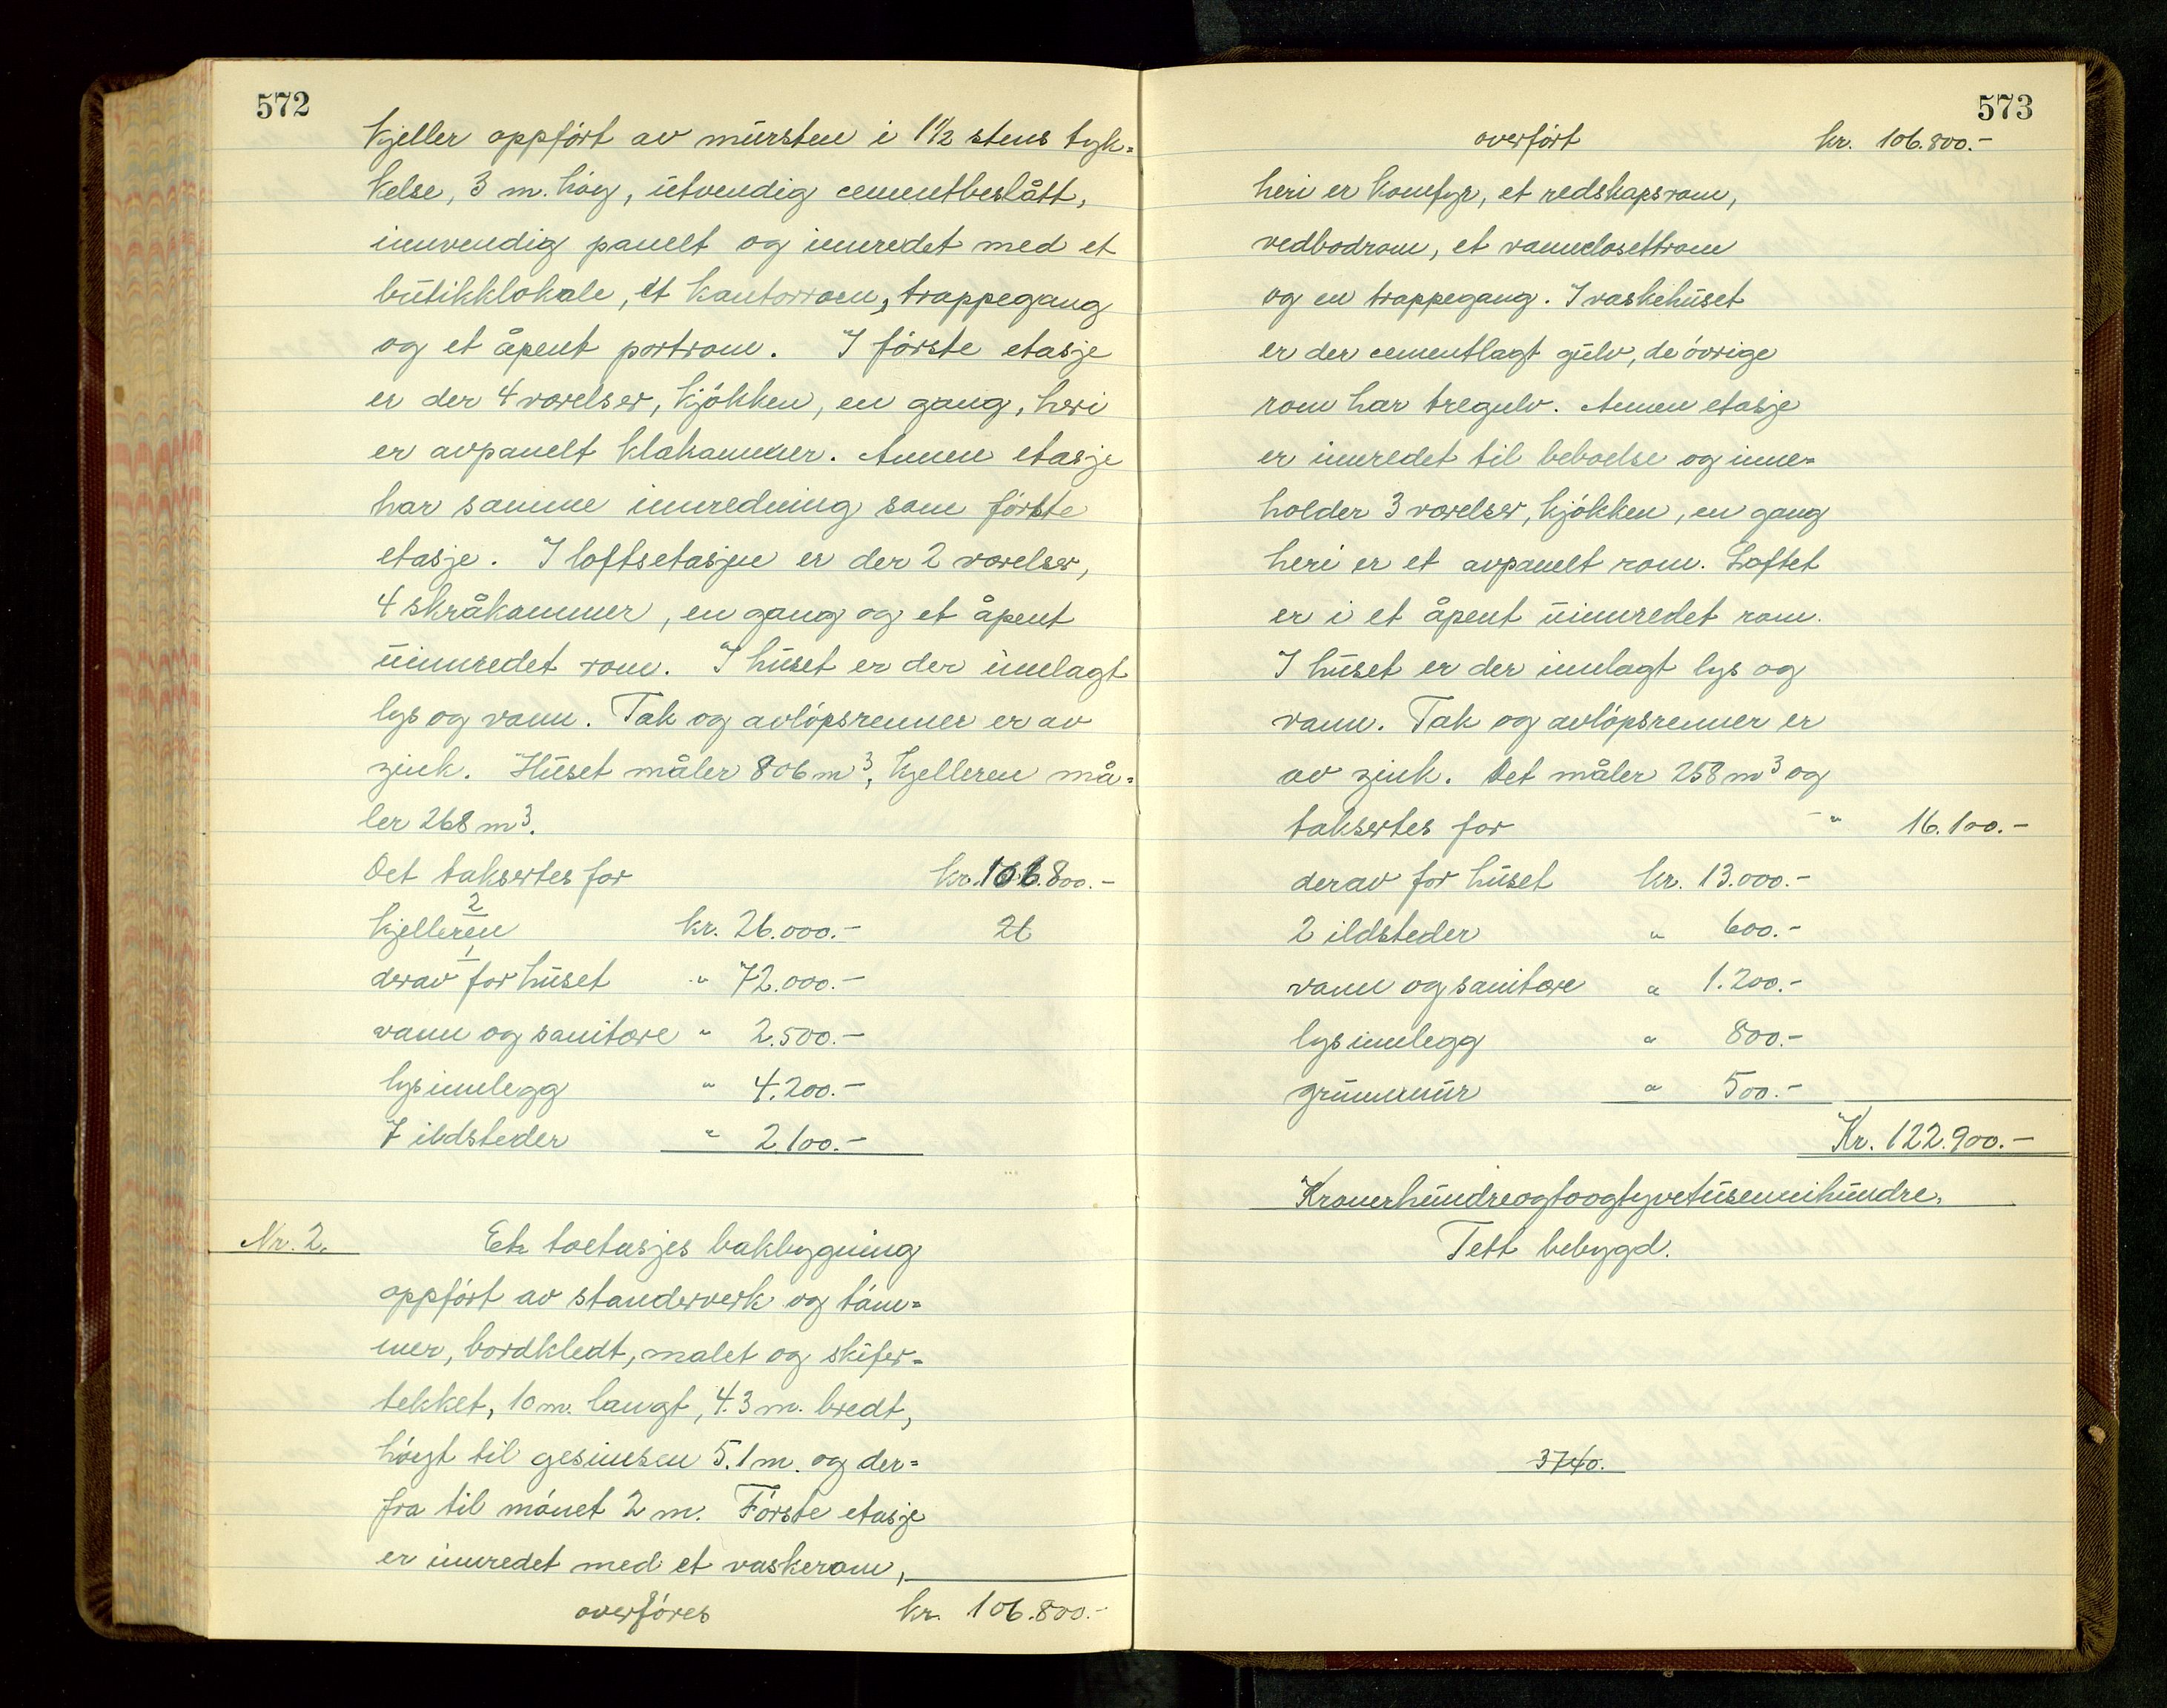 572
kjeller oppført av mursten i 1½ stens tyk=
kelse, 3 m. høy, utvendig cementbeslått,
innvendig panelt og innredet med et
butikklokale, et kontorrom, trappegang
og et åpent portrom. I første etasje
er der 4 værelser, kjøkken, en gang, heri
er avpanelt klækammer. Annen etasje
har samme innredning som første
etasje. I loftsetasjen er der 2 værelser,
4 skråkammer, en gang og et åpent
uinnredet rom. I huset er der innlagt
lys og vann. Tak og avløpsrenner er av
zink. Huset måler 806 m³, kjelleren må=
ler 268 m³.
Det taksertes for kr. 106.800.-
2
kjelleren kr. 26.000.- 2t
1
derav for huset " 72.000.-
vann og sanitære " 2.500.-
lysinnlegg " 4.200.-
7 ildsteder " 2.100.-
Nr. 2. Et toetasjes bakbygning
oppført av standerverk og tøm=
mer, bordkledt, malet og skifer=
tekket, 10 m. langt, 4.3 m. bredt,
høyt til gesimsen 5.1 m. og der=
fra til mønet 2 m. Første etasje
er innredet med et vaskerom,
overføres kr. 106.800.-
573
overført kr. 106.800.-
heri er komfyr, et redskapsrom,
vedbodrom, et vannclosettrom
og en trappegang. I vaskehuset
er der cementlagt gulv, de øvrige
rom har tregulv. Annen etasje
er innredet til beboelse og inne=
holder 3 værelser, kjøkken, en gang
heri er et avpanelt rom. Loftet
er i et åpent uinnredet rom.
I huset er der innlagt lys og
vann. Tak og avløpsrenner er
av zink. Det måler 258 m³ og
taksertes for " 16.100.-
derav for huset kr. 13.000.-
2 ildsteder " 600.-
vann og sanitære " 1.200.-
lysinnlegg " 800.-
grunnmur " 500.-
Kr. 122.900.-
Kronerhundreogtoogtyvetusennihundre.
Tett bebygd.
3740.